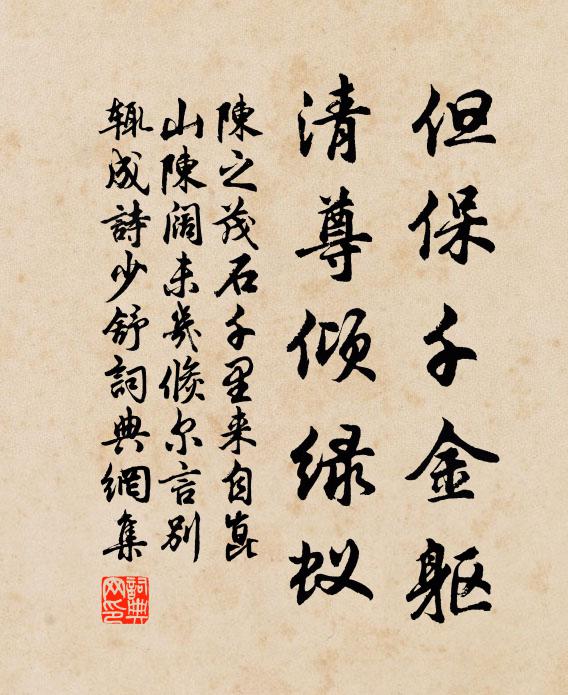 但保千金躯
清尊倾绿蚁
陳之茂石千里来自崑
山陳阔未幾倐尔言别
辄成詩少舒詞典網集
詞典网印